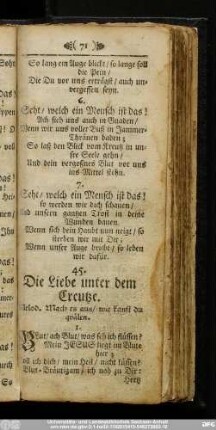 ( 71 )
So lang ein Auge blickt/ so lange soll
die Pein/
Die Du vor uns erträgst/ auch un-
vergessen seyn.
6.
Seht/ welch ein Mensch ist das!
Ach sieh uns auch in Gnaden/
Wenn wir uns voller Lust in Jammer-
Thränen baden;
So laß den Blick vom Creutz in un-
ser Seele gehn/
Und dein vergossnes Blut vor uns
ins Mittel stehn.
7.
Seht/ welch ein Mensch ist das!
so werden wir dich schauen/
Und unsern gantzen Trost in deine
Wunden bauen.
Wenn sich dein Haubt nun neigt/ so
sterben wir mit Dir;
Wenn unser Auge bricht/ so leben
wir dafür.
45.
Die Liebe unter dem
Creutze.
Melod. Mach es aus/ was kanst du
quälen.
1.
Blut/ ach Blut/ was seh ich fliessen?
Mein JESUS liegt im Blute
hier;
soll ich dich/ mein Heil/ nicht küssen?
Blut-Bräutigam/ ich nah zu Dir
Hertz